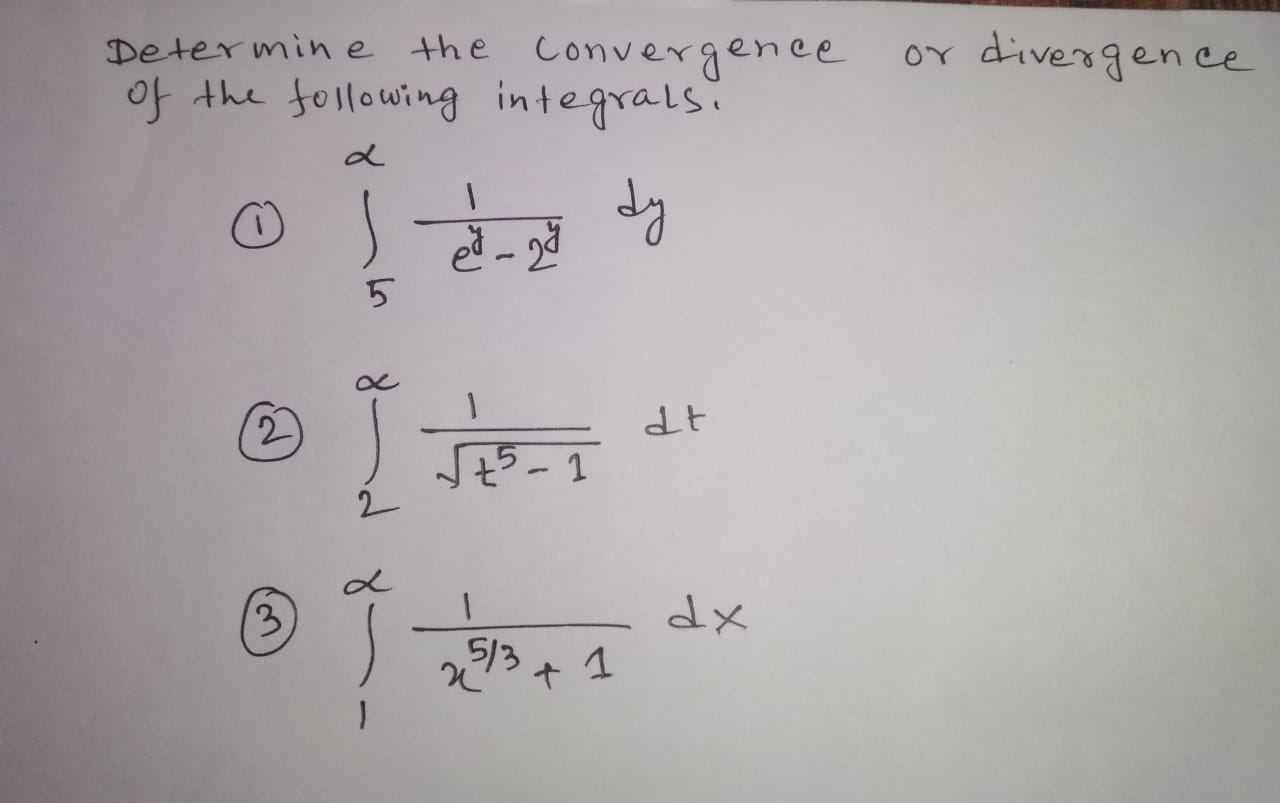 Determine the convergence or divergence
of the following integrals.
① ∫₅^∝ 1/(e^y - 2^y) dy
② ∫₂^∝ 1/√(t^5 - 1) dt
③ ∫₁^∝ 1/(x^5/3 + 1) dx